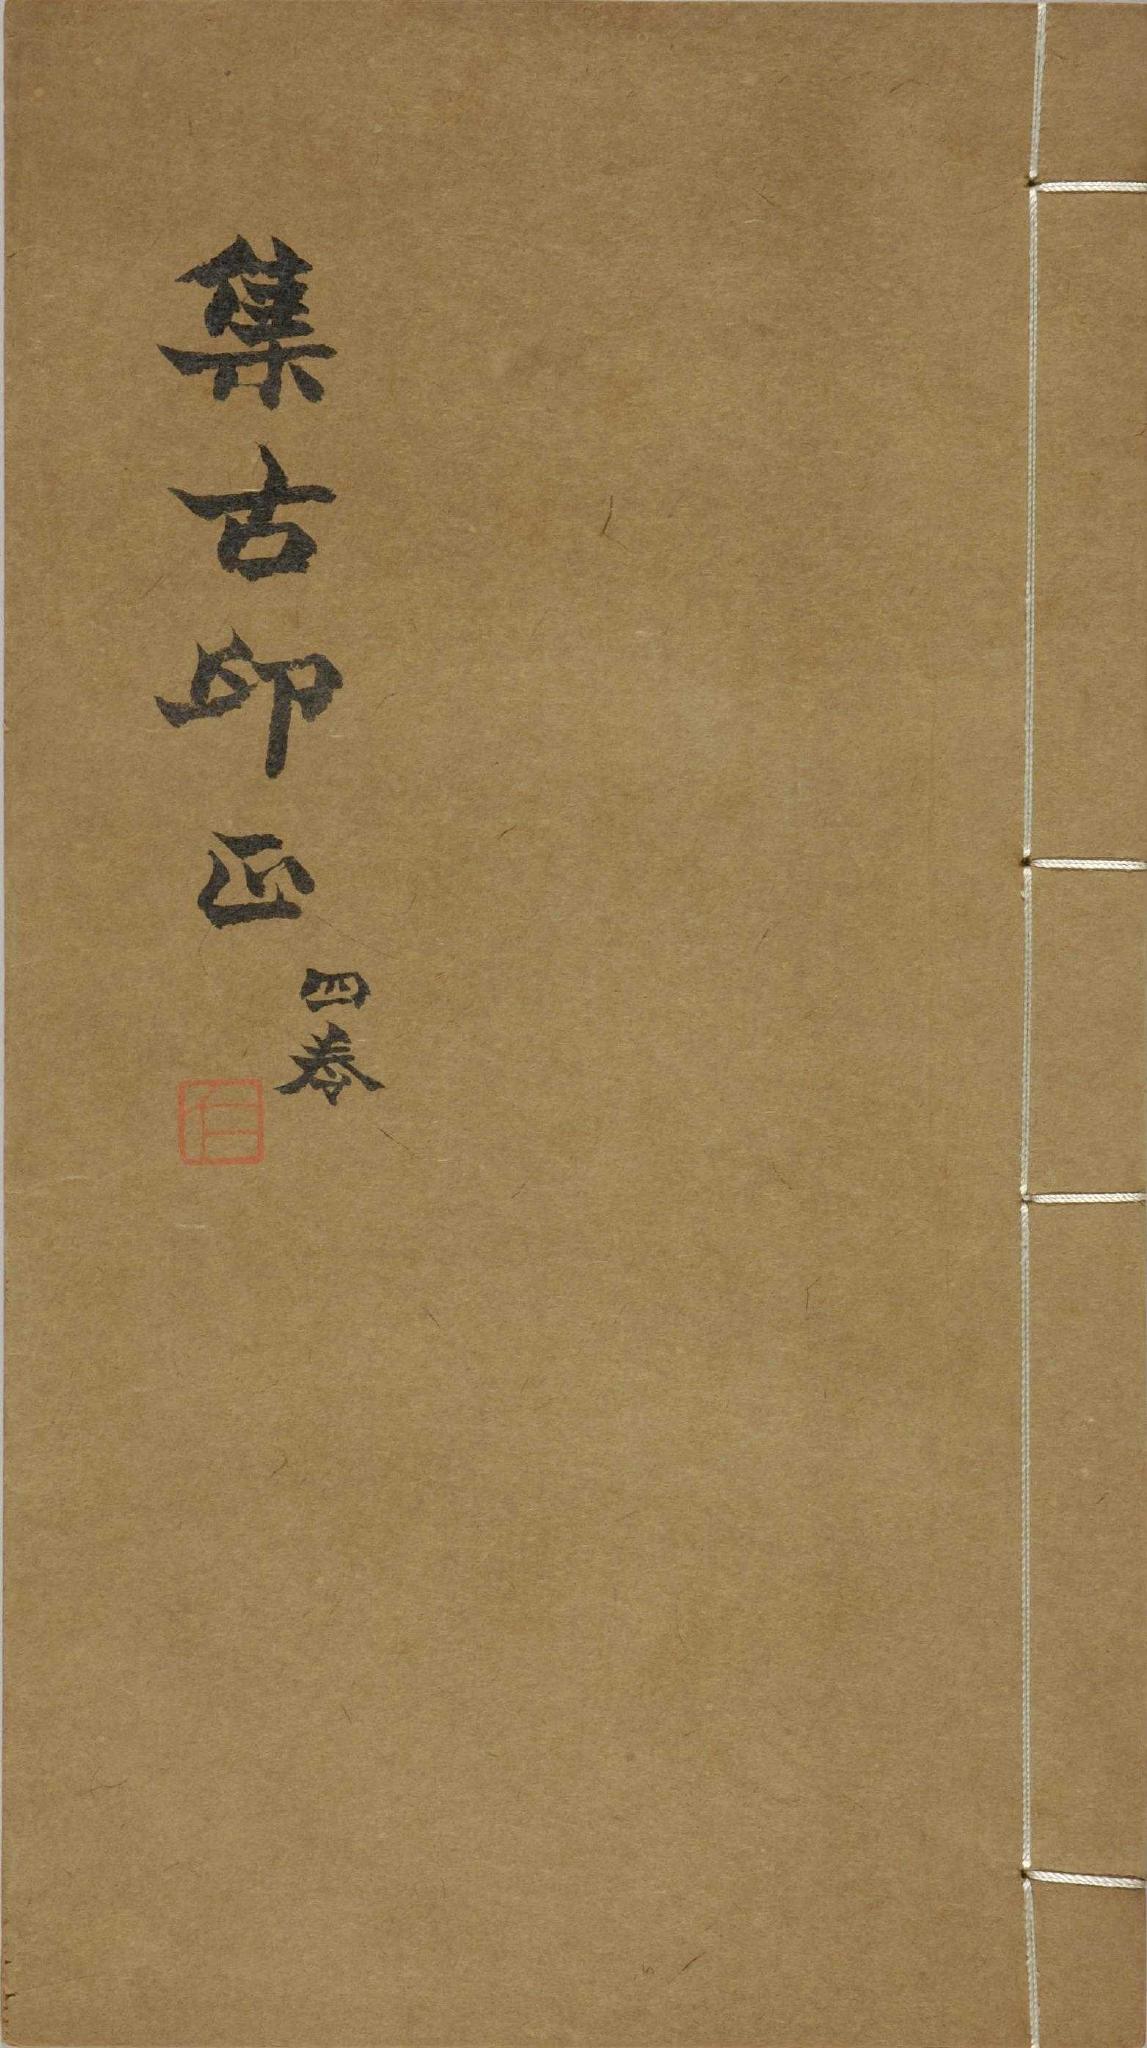 集古印正
四卷
仁